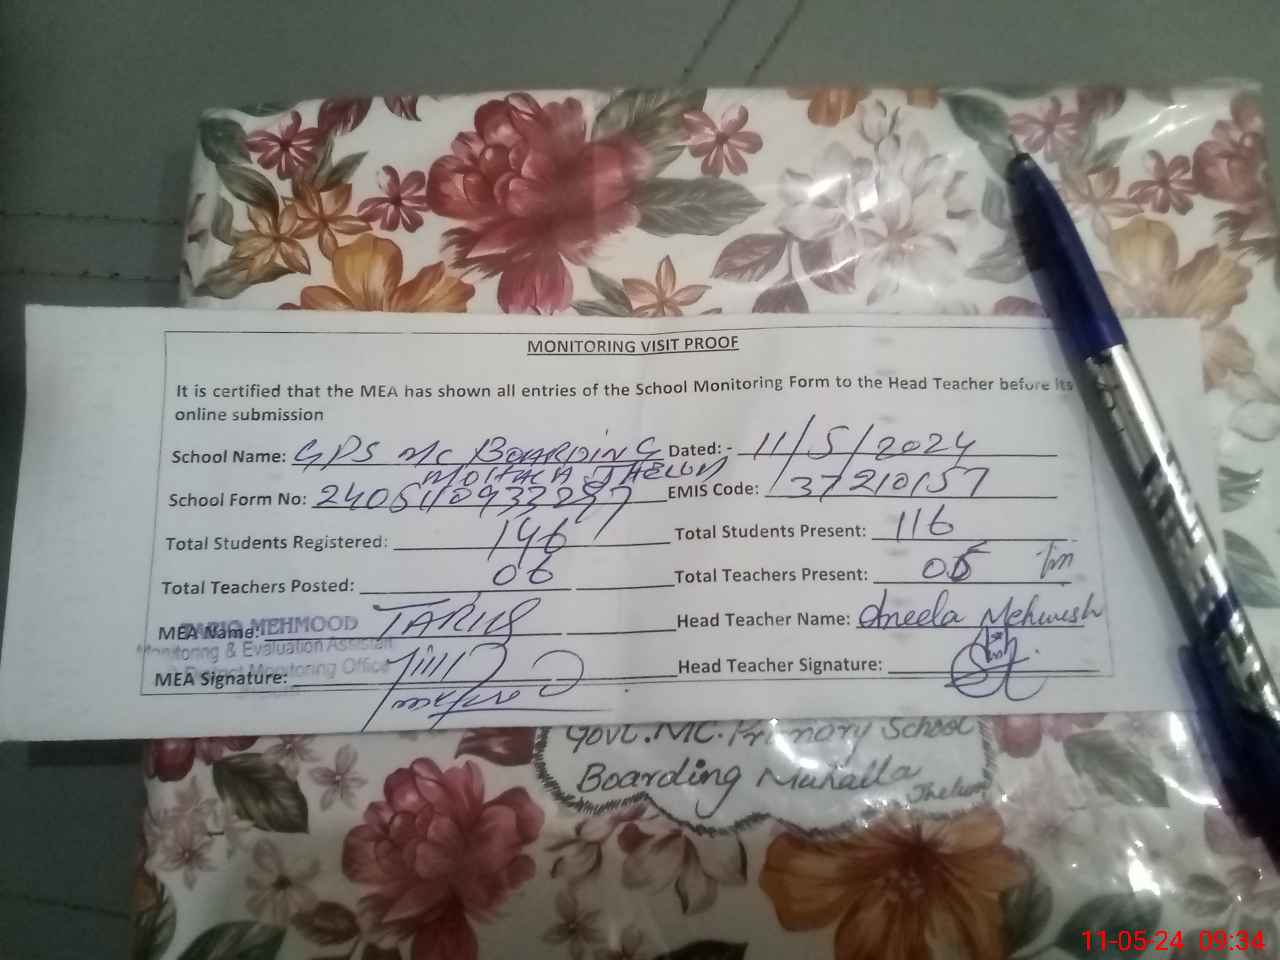 MONITORING VISIT PROOF
It is certified that the MEA has shown all entries of the School Monitoring Form to the Head Teacher before its
online submission
School Name: GPS MC BOARDING Dated: - 11/5/2024
MOHALA JHELUM
School Form No: EMIS Code: 37210157
Total Students Registered: 146 Total Students Present: 116
Total Teachers Posted: 06 Total Teachers Present: 05
MEA Name: TARIQ Head Teacher Name: Aneela Mehwish
TARIQ MEHMOOD
Monitoring & Evaluation Assistant
District Monitoring Office
MEA Signature: Head Teacher Signature:
Govt. MC. Primary School
Boarding Muhalla
Jhelum
11-05-24 09:34